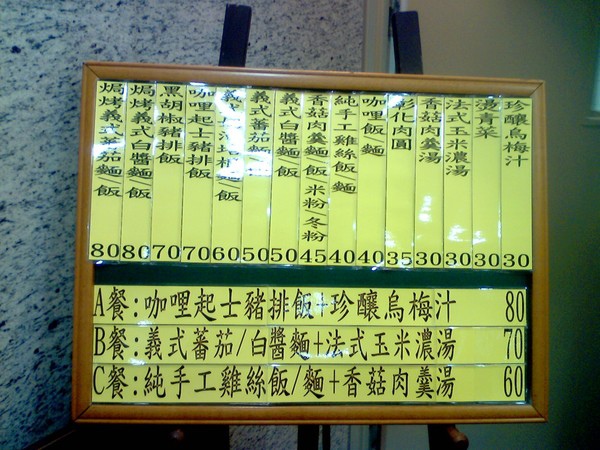 珍釀烏梅汁 30
燙青菜 30
法式玉米濃湯 30
香菇肉羹湯 30
彰化肉圓 35
咖哩飯 麵 40
純手工雞絲飯 麵 40
香菇肉羹麵/飯 米粉/冬粉 45
義式白醬麵/飯 50
義式蕃茄麵/飯 50
義式 麵/飯 60
咖哩起士豬排飯 70
黑胡椒豬排飯 70
焗烤義式白醬麵/飯 80
焗烤義式蕃茄麵/飯 80
A餐:咖哩起士豬排飯+珍釀烏梅汁 80
B餐:義式蕃茄/白醬麵+法式玉米濃湯 70
C餐:純手工雞絲飯/麵+香菇肉羹湯 60